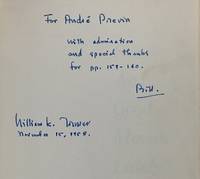 For André Previn
with admiration
and special thanks
for pp. 159-160.
Bill.
William K.
November 15, 1958.